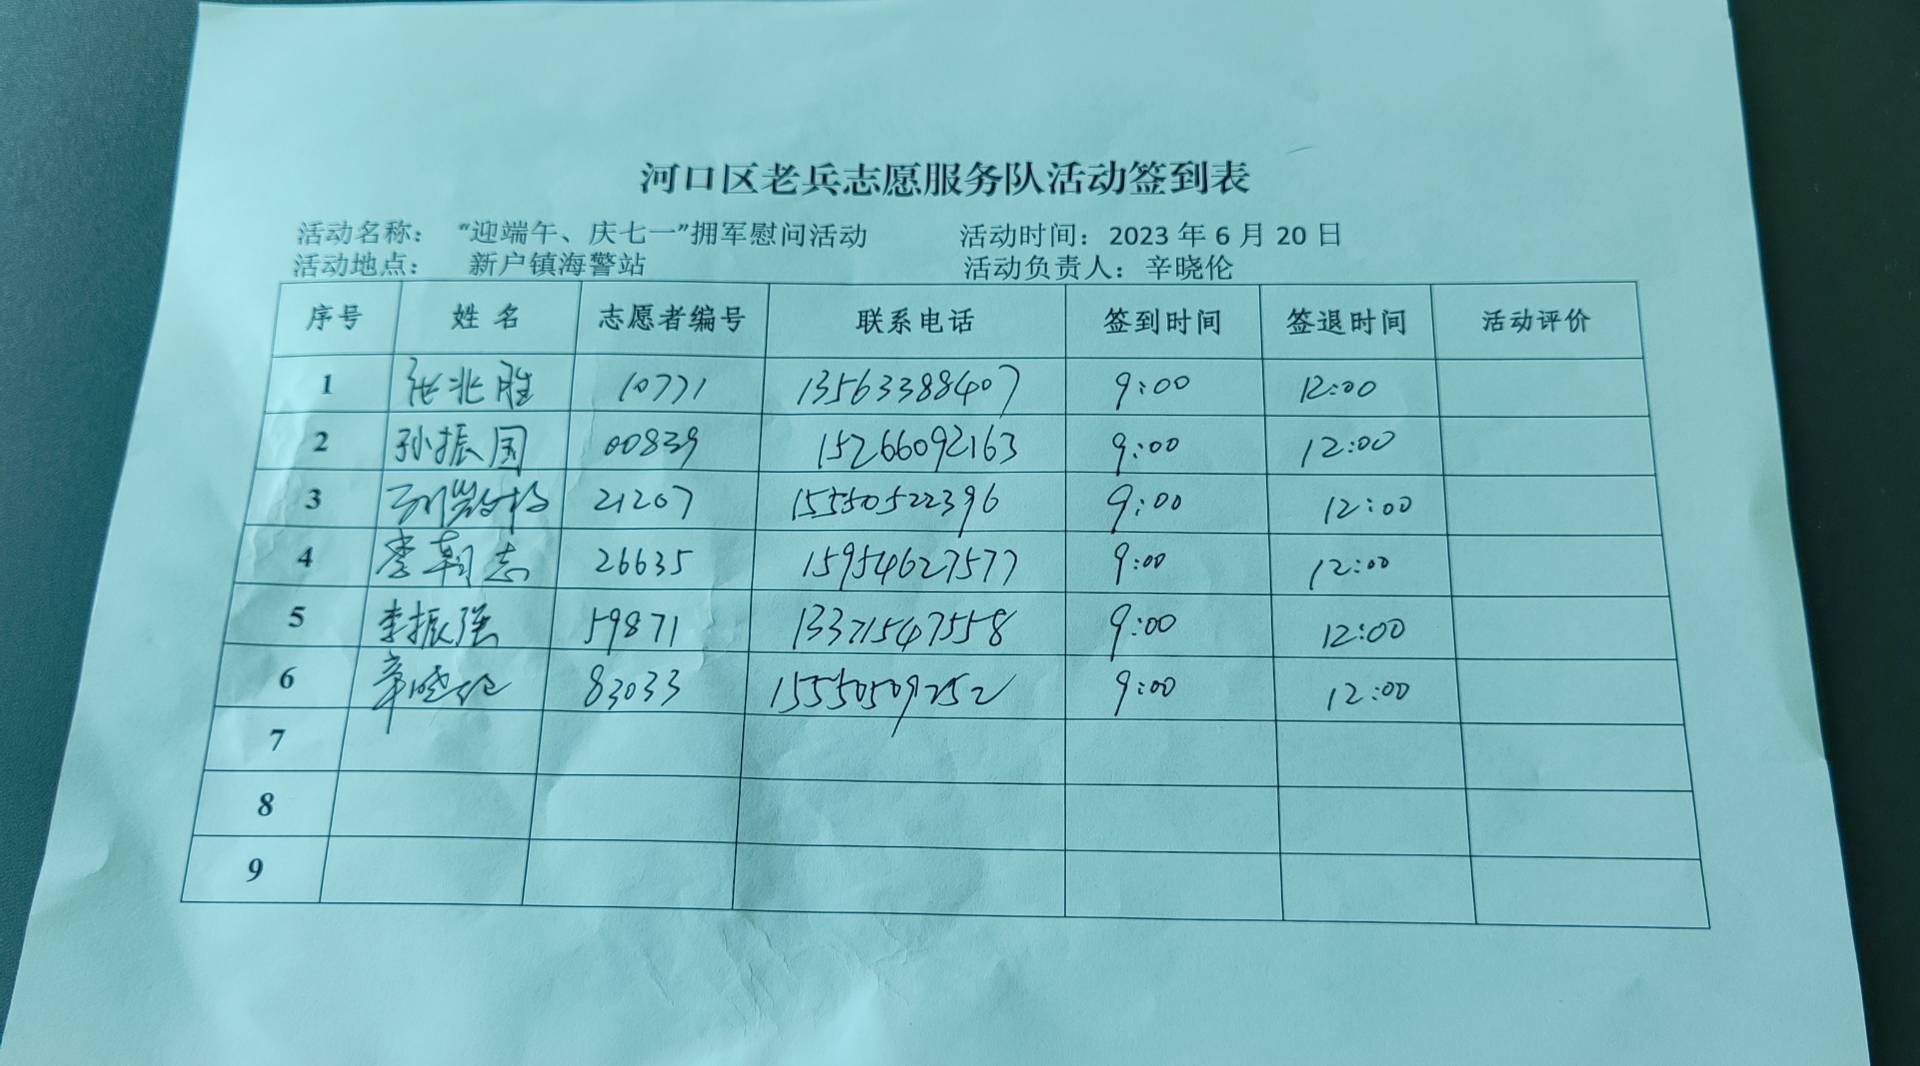 河口区老兵志愿服务队活动签到表
活动名称： “迎端午、庆七一”拥军慰问活动 活动时间：2023 年 6 月 20 日
活动地点： 新户镇海警站 活动负责人：辛晓伦
序号 姓 名 志愿者编号 联系电话 签到时间 签退时间 活动评价
1 张兆胜 10771 13563388407 9:00 12:00
2 孙振国 00839 15266092163 9:00 12:00
3 21207 15550522396 9:00 12:00
4 李朝志 26635 15954627577 9:00 12:00
5 李振强 59871 13371547558 9:00 12:00
6 辛晓伦 83033 15550509252 9:00 12:00
7
8
9